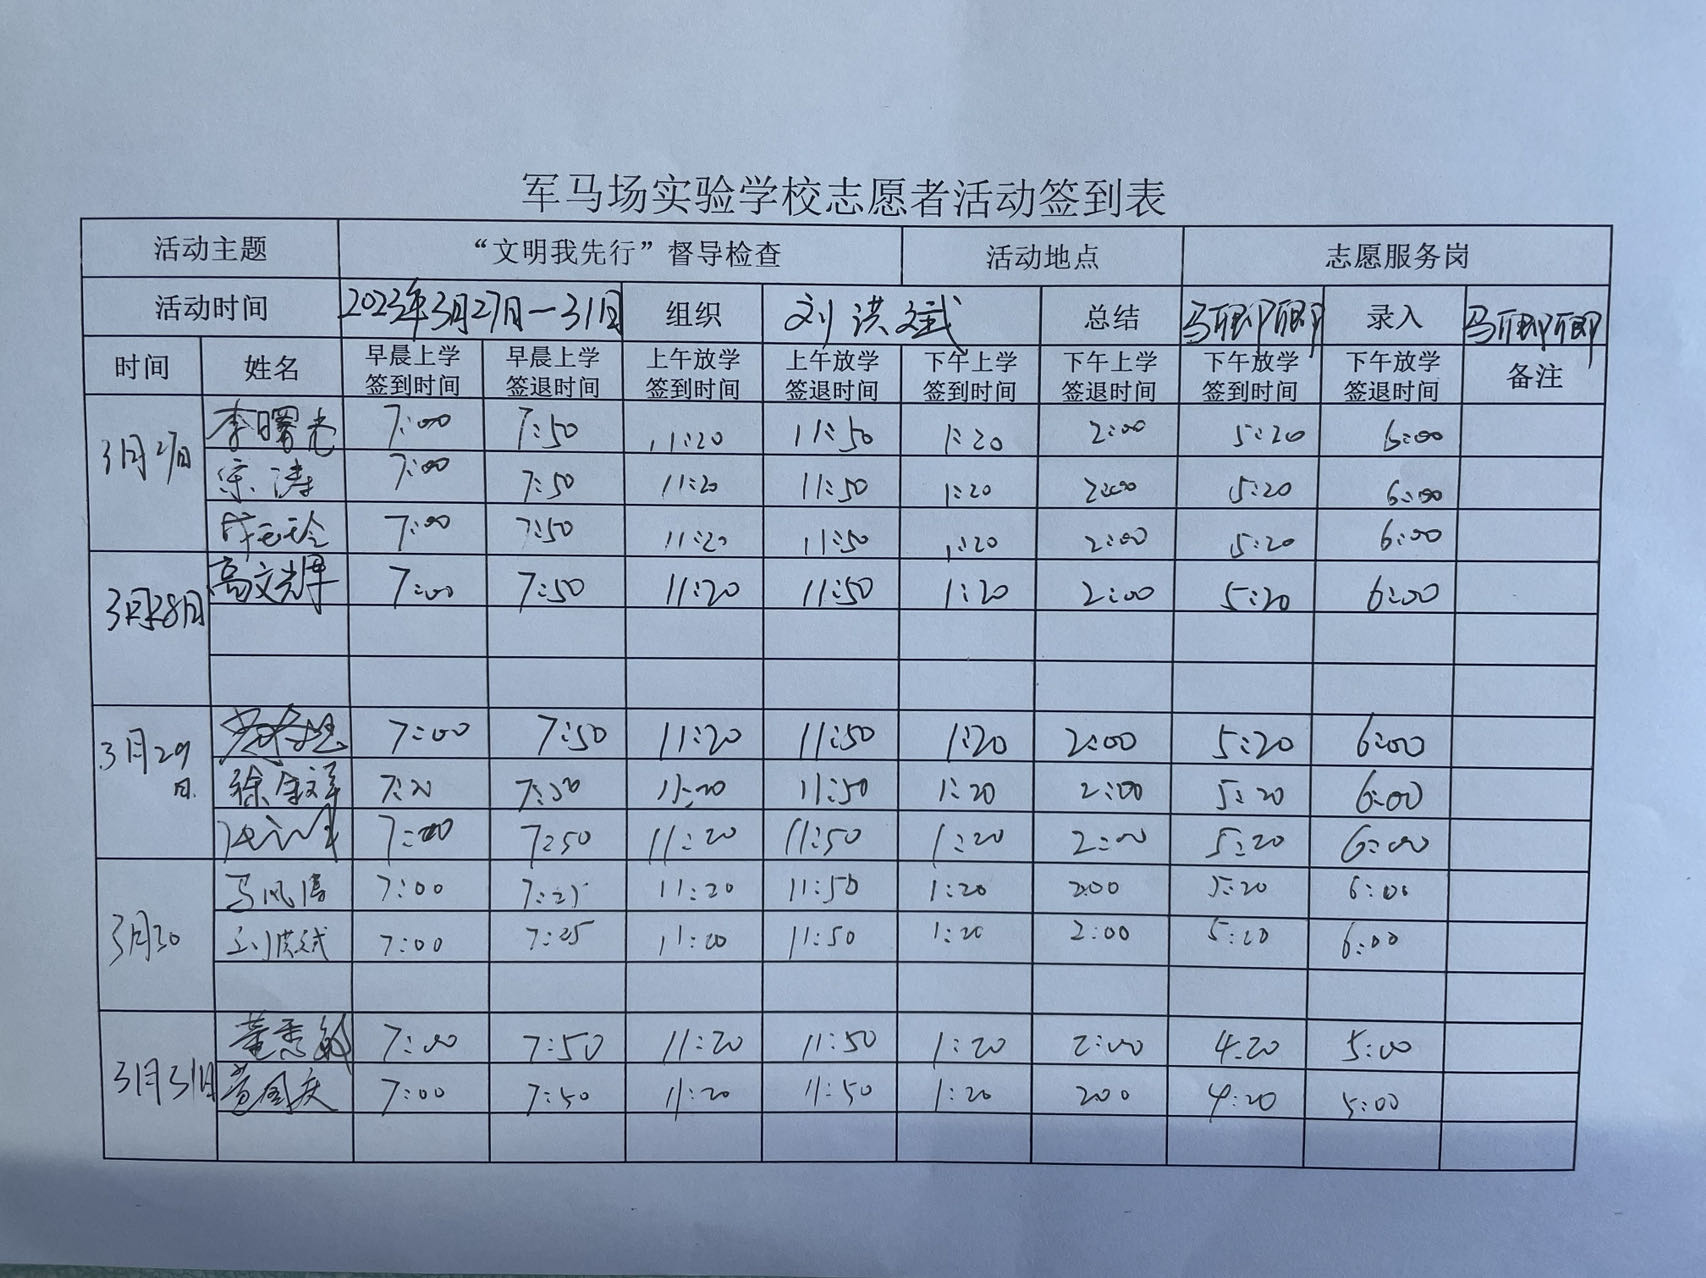 军马场实验学校志愿者活动签到表
活动主题 “文明我先行”督导检查 活动地点 志愿服务岗
活动时间 2023年3月27日—31日 组织 刘洪斌 总结 马丽丽 录入 马丽丽
时间 姓名 早晨上学签到时间 早晨上学签退时间 上午放学签到时间 上午放学签退时间 下午上学签到时间 下午上学签退时间 下午放学签到时间 下午放学签退时间 备注
3月27日 李曙光 7:00 7:50 11:20 11:50 1:20 2:00 5:20 6:00
宗涛 7:00 7:50 11:20 11:50 1:20 2:00 5:20 6:00
7:00 7:50 11:20 11:50 1:20 2:00 5:20 6:00
3月28日 高文辉 7:00 7:50 11:20 11:50 1:20 2:00 5:20 6:00
3月29日 7:00 7:50 11:20 11:50 1:20 2:00 5:20 6:00
徐 7:50 11:20 11:50 1:20 2:00 5:20 6:00
7:00 7:50 11:20 11:50 1:20 2:00 5:20 6:00
3月30 马风 7:00 7:25 11:20 11:50 1:20 2:00 5:20 6:00
刘洪斌 7:00 7:25 11:20 11:50 1:20 2:00 5:20 6:00
3月31日 董秀敏 7:00 7:50 11:20 11:50 1:20 2:00 4:20 5:00
7:00 7:50 11:20 11:50 1:20 200 4:20 5:00